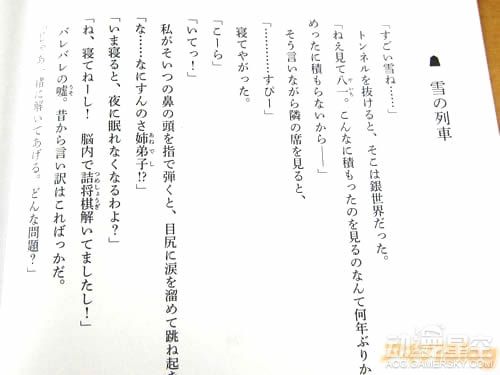 雪の列車
「すごい雪ね……」
トンネルを抜けると、そこは銀世界だった。
「ねえ見て八一。こんなに積もったのを見るのなんて何年ぶりか
めったに積もらないから――」
そう言いながら隣の席を見ると、
「…………すぴー」
寝てやがった。
「こーら」
「いてっ！」
私がそいつの鼻の頭を指で弾くと、目尻に涙を溜めて跳ね起き
「な……なにすんのさ姉弟子!?」
「いま寝ると、夜に眠れなくなるわよ？」
「ね、寝てねーし！　脳内で詰将棋解いてましたし！」
バレバレの嘘。昔から言い訳はこればっかだ。
緒に解いてあげる。どんな問題？」
ACG.GAMERSKY.COM